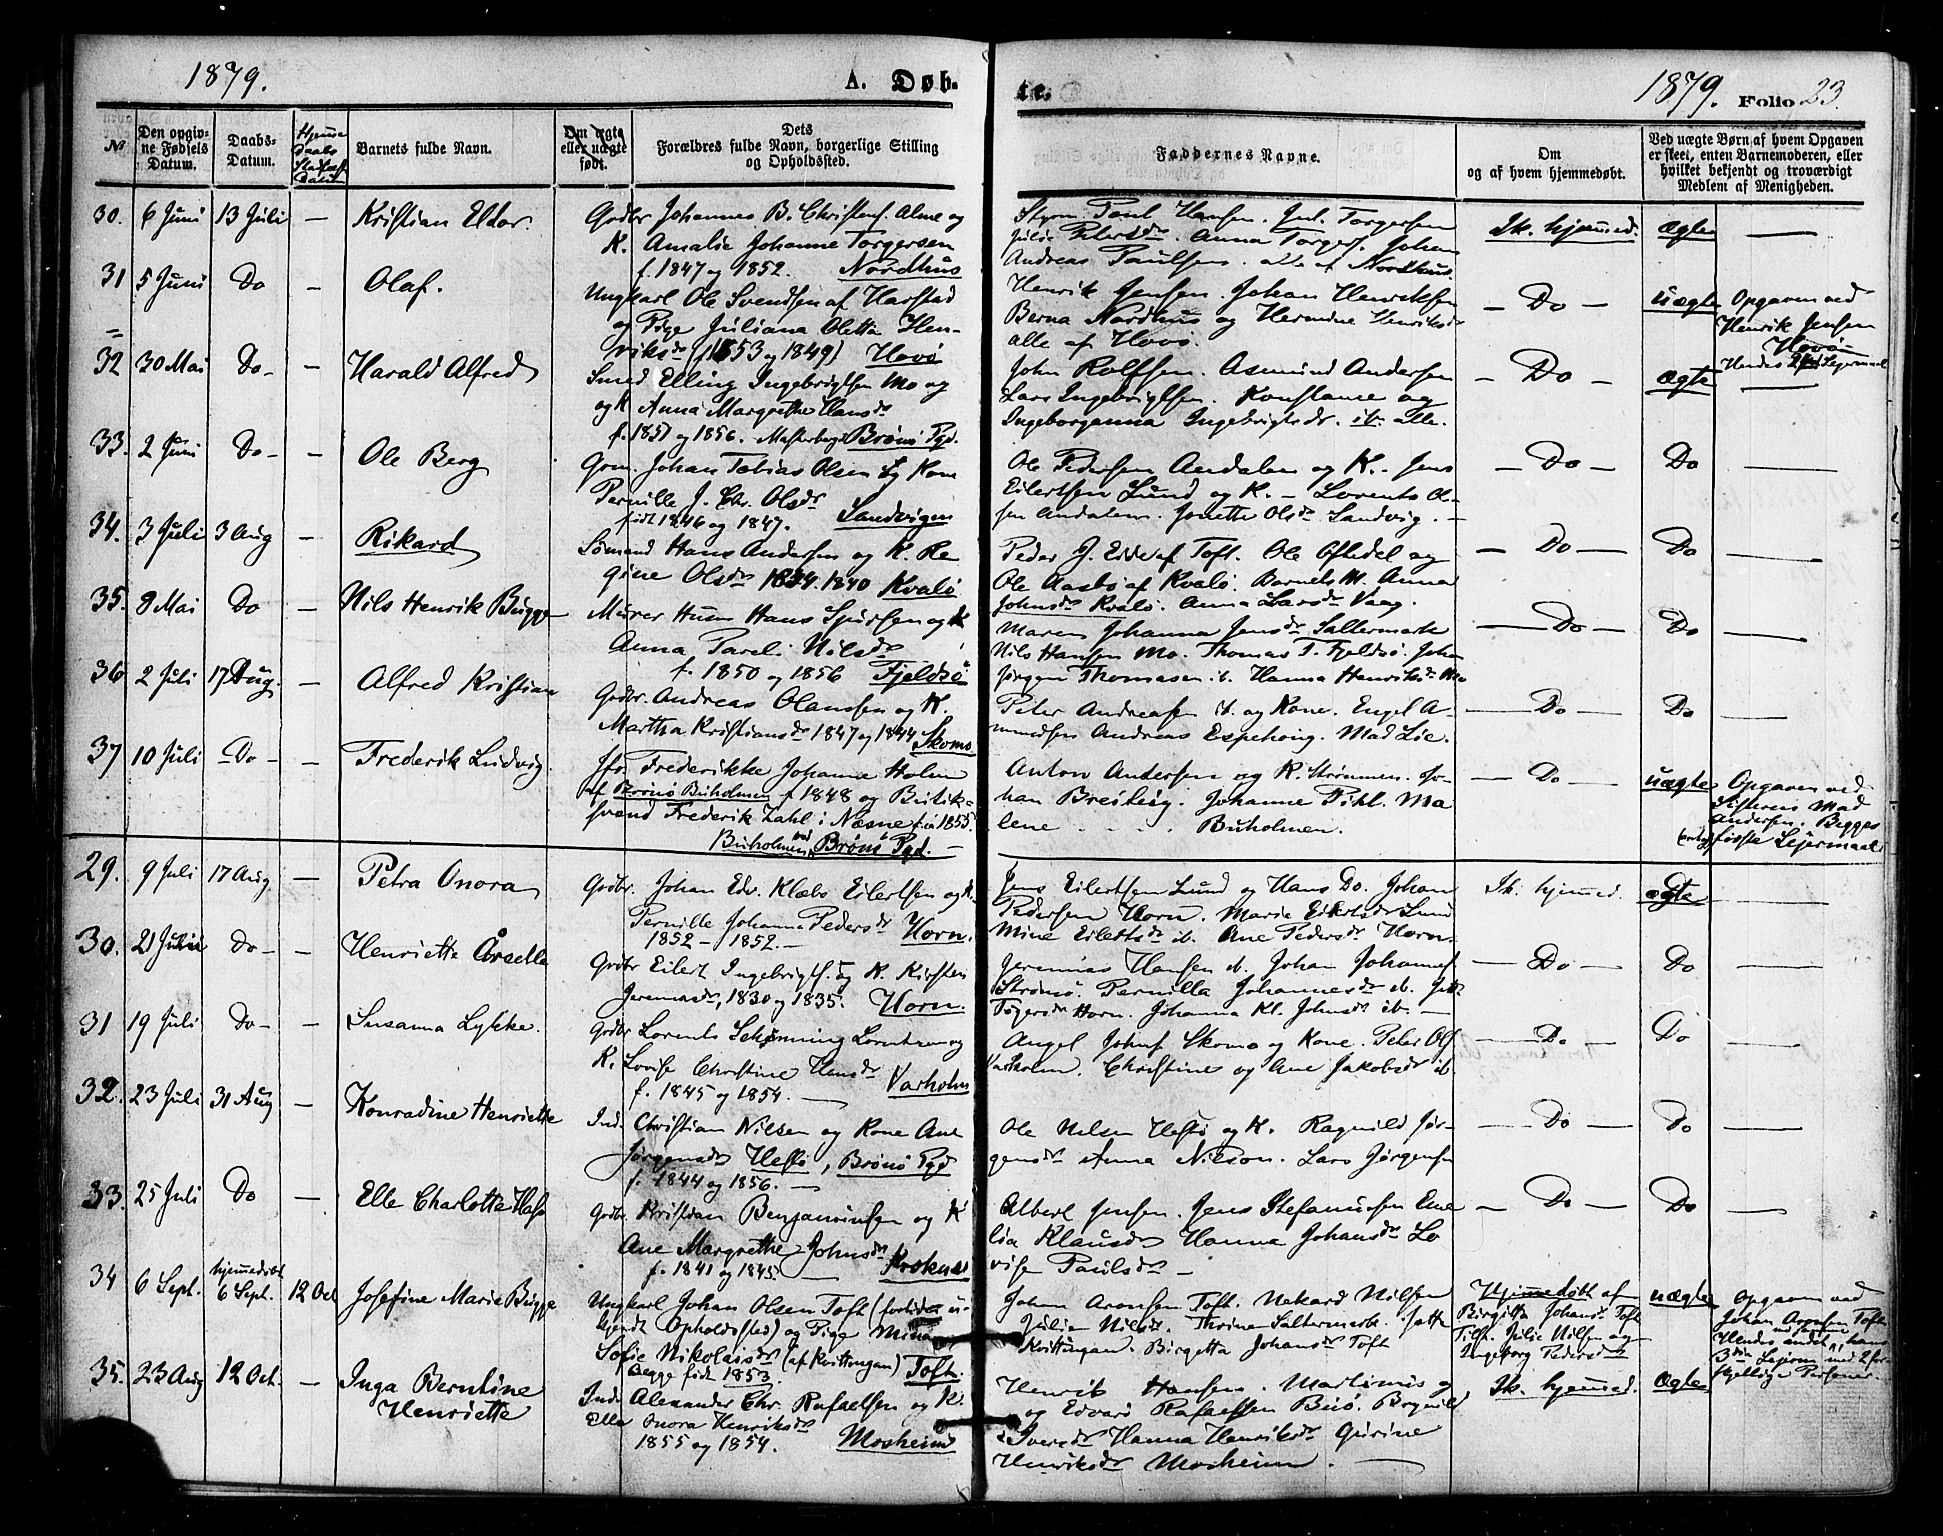 1879.
A. Døb-
te.
1879. Folio 23.
No
Den opgiv-
ne Fødsels
Datum.
Daabs-
Datum.
Hjemme
daabs
Stadfæst.
Datum
Barnets fulde Navn.
Om ægte
eller uægte
født.
Dets
Forældres fulde Navn, borgerlige Stilling
og Opholdssted.
Faddernes Navne.
Om
og af hvem hjemmedøbt.
Ved uægte Børn af hvem Opgaven
er skeet, enten Barnemoderen, eller
hvilket bekjendt og troværdigt
Medlem af Menigheden.
30. 6 Juni 13 Juli — Kristian Eldor.
Grdbr Johannes B. Christens. Alme og
K. Amalie Johanne Torgersen
f. 1847 og 1852. Nordhus
Styrm Paul Hansen. Torgersen
Julie Petersdr. Anna Torgers. Johan
Andreas Paulsen. alle af Nordhus.
Ik. hjemmed. ægte —
31 5 Juni Do — Olaf.
Ungkarl Ole Svendsen af Harstad
og Pige Juliana Oletta Hen-
riksdr (1853 og 1849) Hovø
Henrik Jensen. Johan Henriksen
Berna Nordhus og Hermine Henriksdr
alle af Hovø.
— Do — uægte
Opgaven ved
Henrik Jensen
Hovø
Hendes 2det Leiermaal
32 30 Mai Do — Harald Alfred
Smed Elling Ingebrigtsen Mo og
og K Anna Margrethe Hansdr
f. 1851 og 1856. Brønø Pgd.
John Rolfsen. Asmund Andersen
Lars Ingebrigtsen. Konstance og
Ingeborganna Ingebrigtsdr. ib. alle.
— Do — ægte —
33. 2 Juni Do — Ole Berg
Grm. Johan Tobias Olsen og Kone
Pernille J. Chr. Olsdr
født 1846 og 1847. Sandvigen
Ole Pedersen Andalen og K. Jens
Eilertsen Lund og K. — Lorents Ol-
sen Andalen. Jonette Olsdr Sandvig. —
— Do — Do —
34. 3 Juli 3 Aug — Rikard
Sømand Hans Andersen og K. Re-
gine Olsdr 1834. 1840 Kvalø
Peder J. Edde af Toft. Ole Oftedel og
Ole Aasbø af Kvalø. Barnets M. Anna
Johnsdr Kvalø. Anna Larsdr Vaag.
— Do — Do —
35. 8 Mai Do — Nils Henrik Bugge
Murer Husm Hans Sjursen og K
Anna Pareli Nilsdr
f. 1850 og 1856 Fjeldsø
Maren Johanna Jensdr Saltermark
Nils Hansen Mo. Thomas T. Fjeldsø. Johan
Jørgen Thomasen ib. Hanna Henriksdr Mo
— Do — Do —
36 2 Juli 17 Aug. — Alfred Kristian
Grdbr. Andreas Olaussen og K.
Martha Kristiansdr 1847 og 1844 Skomo
Peter Andreasen ib. og Kone. Engel A-
mundsen Andreas Espehong. Mad Lie.
— Do — Do —
37 10 Juli Do — Frederik Ludvig
Jfr. Frederikke Johanne Holm
af Brønø Buholmen f 1848 og Butik-
svend Frederik Zahl i Næsne f. 1855.
Buholmen ved Brønø Pgd. —
Anton Andersen og K. Strømmen. Jo-
han Breivig. Johanne Pihl. Ma-
lene Buholmen.
— Do — uægte
Opgaven ved
Søsteren Mad
Andersen. Begges
første Leiermaal
29. 9 Juli 17 Aug — Petra Onora
Grdbr. Johan Edv. Klæbo Eilertsen og K.
Pernille Johanna Pedersdr Horn.
1852 – 1852. —
Jens Eilertsen Lund og Hans Do. Johan
Pedersen Horn. Marie Eilertsdr Lund
Mine Eilertsdr ib. Ane Pedersdr Horn.
Ik. hjemmed. ægte —
30. 21 Juli Do — — Henriette Årselle
Grdbr Eilert Ingebrigts. og K. Kirsten
Jeremiasdr, 1830 og 1835. Horn.
Jeremias Hansen ib. Johan Johannes
Strømø. Pernilla Johannesdr ib.
Tøgersdr Horn. Johanna Kl. Johnsdr ib. —
— Do — Do —
31 19 Juli Do — — Susanna Lykke.
Grdbr Lorents Schjønning Lorntzen og
K. Lovise Christine Hansdr
f. 1845 og 1854. — Varholm
Angel Johns. Skomo og Kone. Peter Ols
Varholm. Christine og Ane Jakobsdr ib.
— Do — Do —
32. 23 Juli 31 Aug — Konradine Henriette
Ind. Christian Nilsen og Kone Ane
Jørgensdr Hestø, Brønø Pgd
f. 1844 og 1856. —
Ole Nilsen Hestø og K. Ragnild Jør-
gensdr Anna Nilson. Lars Jørgensen
— Do — Do —
33. 25 Juli Do — Elle Charlotte
Grdbr. Kristian Benjaminsen og K
Ane Margrethe Johnsdr
f. 1841 og 1845. — Kroknes
Albert Jensen. Jens Stefanusen Eme-
lia Klausdr Hanna Johansdr Lo-
vise Paulsdr —
— Do — Do —
34 6 Sept. hjemmedøbt
6 Sept. 12 Oct Josefine Marie Bugge
Ungkarl Johan Olsen Toft (fortiden u-
kjendt Opholdssted) og Pige Mina
Sofie Nikolaisdr (af Kvittingan) Toft.
Begge født 1853.
Johan Aronsen Toft. Nekard Nilsen
Julie Nilsdr. Thrine Saltermark. Jette
Kvittingan. Birgetta Johansdr Toft
Hjemmedøbt af
Birgitta Johansdr Toft
Tilst. Julie Nilsen og
Ingeborg Pedersdr
uægte
Opgaven ved
Johan Aronsen Toft
Hendes andet, hans
3die Leierm. med 2 for-
skjellige Personer.
35. 23 Aug 12 Oct. — Inga Berntine
Henriette
Ind. Alexander Chr. Rafaelsen og K.
Ella Onora Henriksdr
1855 og 1854. Mosheim
Henrik Hansen. Martinus og
og Edvard Rafaelsen Buø. Bergnild
Iversdr Hanna Henriksdr Gurine
Henriksdr Mosheim. —
Ik. hjemmed. ægte